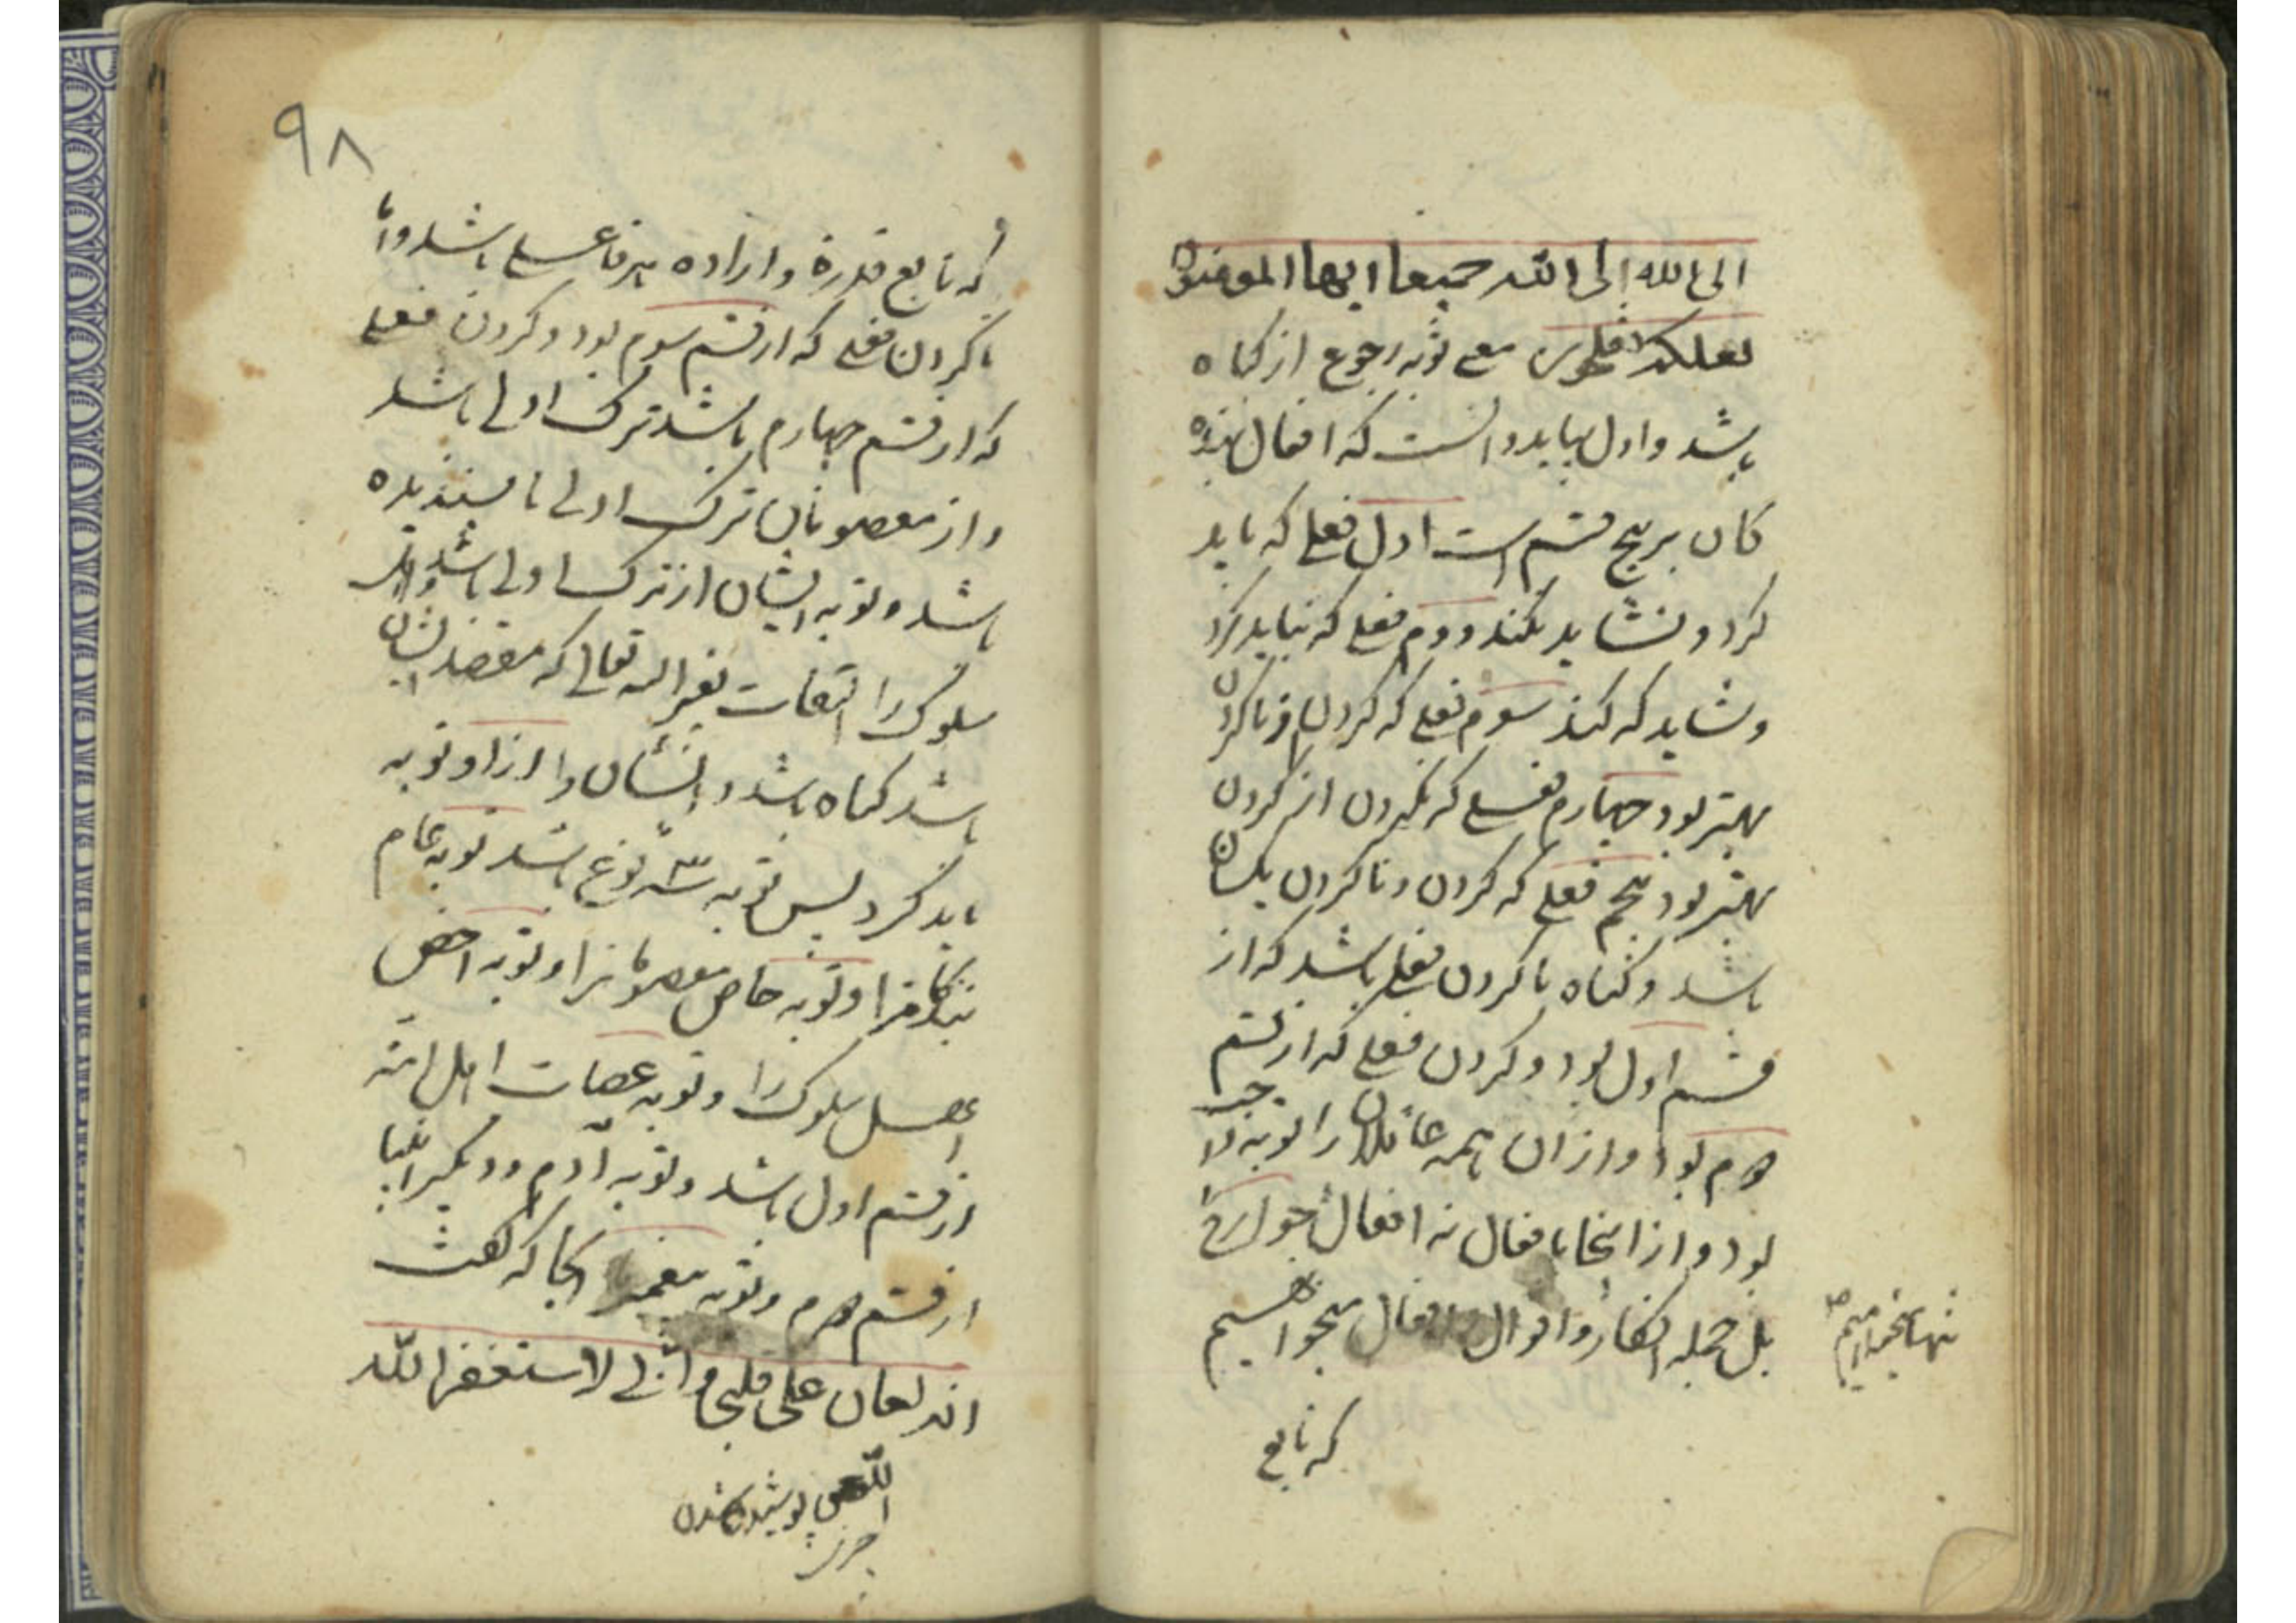 الی الله الی الله جمیعا ایها المومنون
لعلکم تفلحون معنی توبه رجوع از کناه
باشد و اول بباید دانست که افعال بنده
کان بر پنج قسم است اول فعلی که باید
کرد و نشاید نکند دوم فعلی که نباید کرد
و نشاید که کند سوم فعلی که کردن از ناکردن
بهتر بود چهارم فعلی که نکردن از کردن
بهتر بود پنجم فعلی که کردن و ناکردن یکسان
باشد و کناه ناکردن فعلی باشد که از
قسم اول بود و کردن فعلی که از قسم
دوم بود و از ان همه عاقلان را توبه واجب
بود و از اینجا بافعال نه افعال جوارح
تنها میخواهیم
بل جمله افکار و اقوال و افعال میخواهیم
که تابع
۹۸
که تابع قدرة و اراده هر فاعلی باشد و اما
ناکردن فعلی که از قسم سوم بود و کردن فعلی
که از قسم چهارم باشد ترک اولی باشد
و از معصومان ترک اولی ناپسندیده
باشد و توبه ایشان از ترک اولی باشد و اهل
سلوک را التفات بغیر الله تعالی که مقصد ایشان
باشد کناه باشد و ایشان را از او توبه
باید کرد پس توبه سه نوع باشد توبه عام
بندکانرا و توبه خاص معصومانرا و توبه اخص
اهل سلوک را و توبه عصات اهل امة
از قسم اول باشد و توبه آدم و دیکر انبیا
از قسم دوم و توبه پیغمبر انجا که کفت
انه لیغان علی قلبی و انی لاستغفر الله
پوشیده شدن